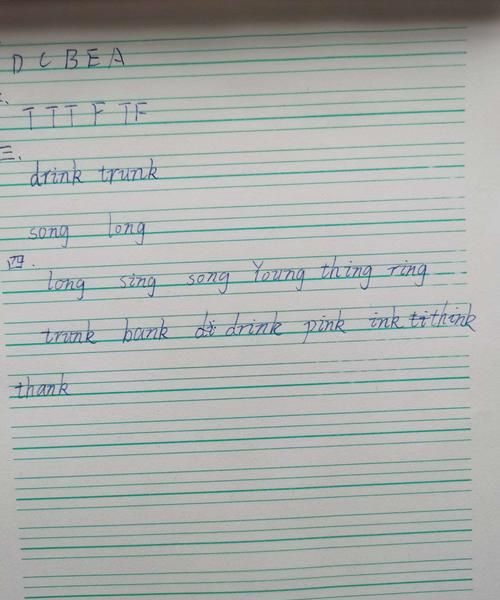 D C B E A
二、
T T T F T F
三、
drink trunk
song long
四.
long sing song Young thing ring
trunk bank drink pink ink think
thank